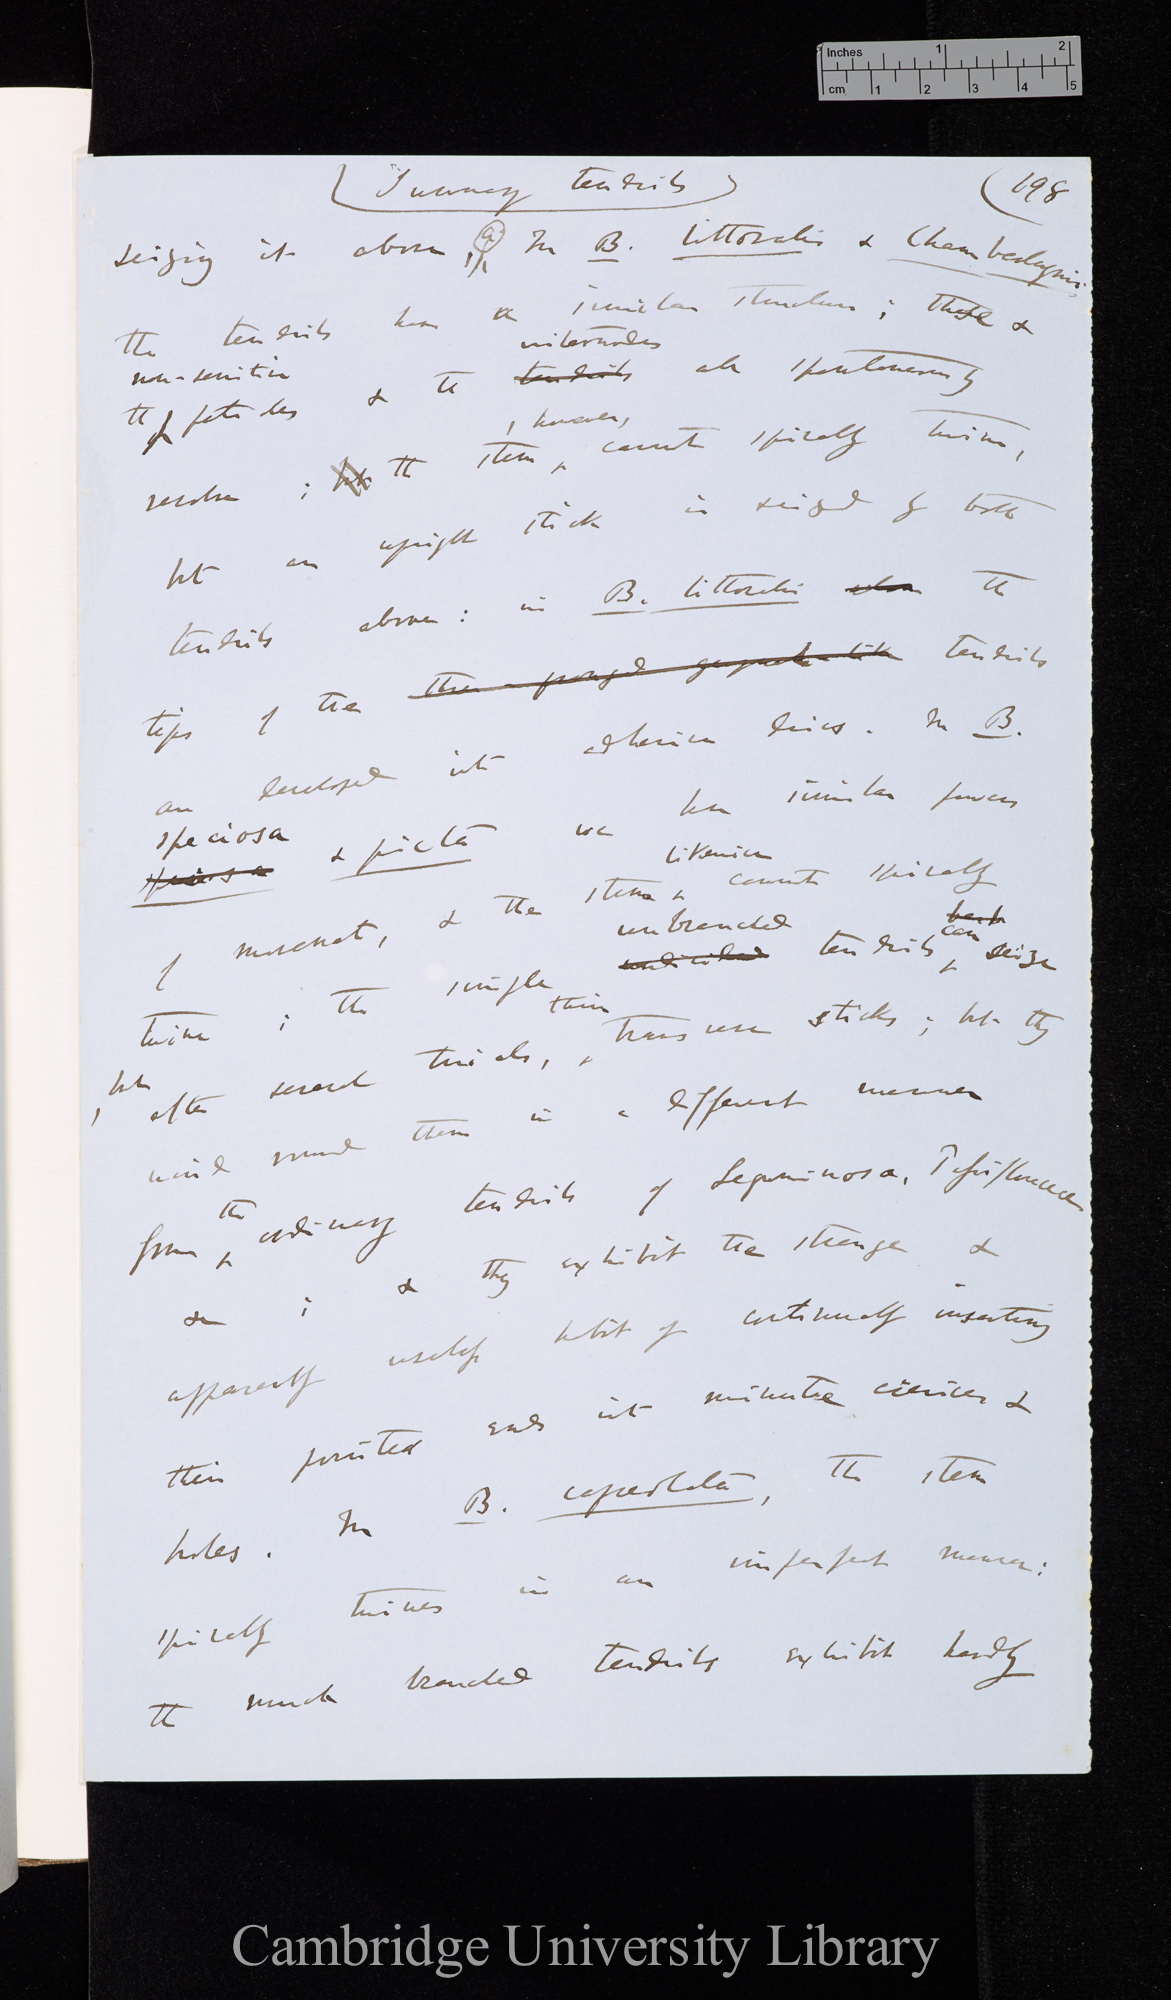 Inches 1 2
cm 1 2 3 4 5
(Summary tendrils) (198
seizing it above, (a) In B. littoralis & Chamberlaynii
the tendrils have a similar structure; these &
non-sensitive internodes
the petioles & the tendrils also spontaneously
, however,
revolve; but the stem cannot spirally twine,
but an upright stick is seized by both
tendrils above: in B. littoralis the
tips of the three-pronged tendrils
are developed into adhesive discs. In B.
speciosa
& picta we have similar powers
likewise
of movement, & the stem cannot spirally
unbranched can
twine; the single undivided tendrils seize
thin
, but after several trials, transverse sticks; but they
wind round them in a different manner
the
from ordinary tendrils of Leguminosæ, Passifloraceæ
&c; & they exhibit the strange &
apparently useless habit of continually inserting
their pointed ends into minute crevices &
holes. In B. capreolata, the stem
spirally twines in an imperfect manner:
the much branched tendrils exhibit hardly
Cambridge University Library